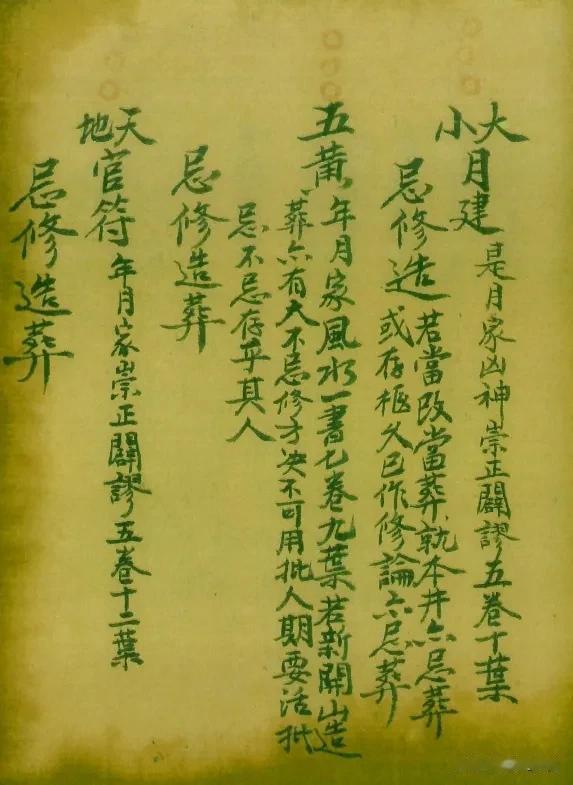 大小月建 是月家凶神崇正闢謬五卷十葉
忌修造 若當改當葬就本井亦忌葬
或存柩久已作修論亦忌葬
五黄 年月家風水一書七卷九葉若新開山造
葬亦有大不忌修方決不可用批人期要活批
忌不忌存乎其人
忌修造葬
天地官符 年月家崇正闢謬五卷十二葉
忌修造葬